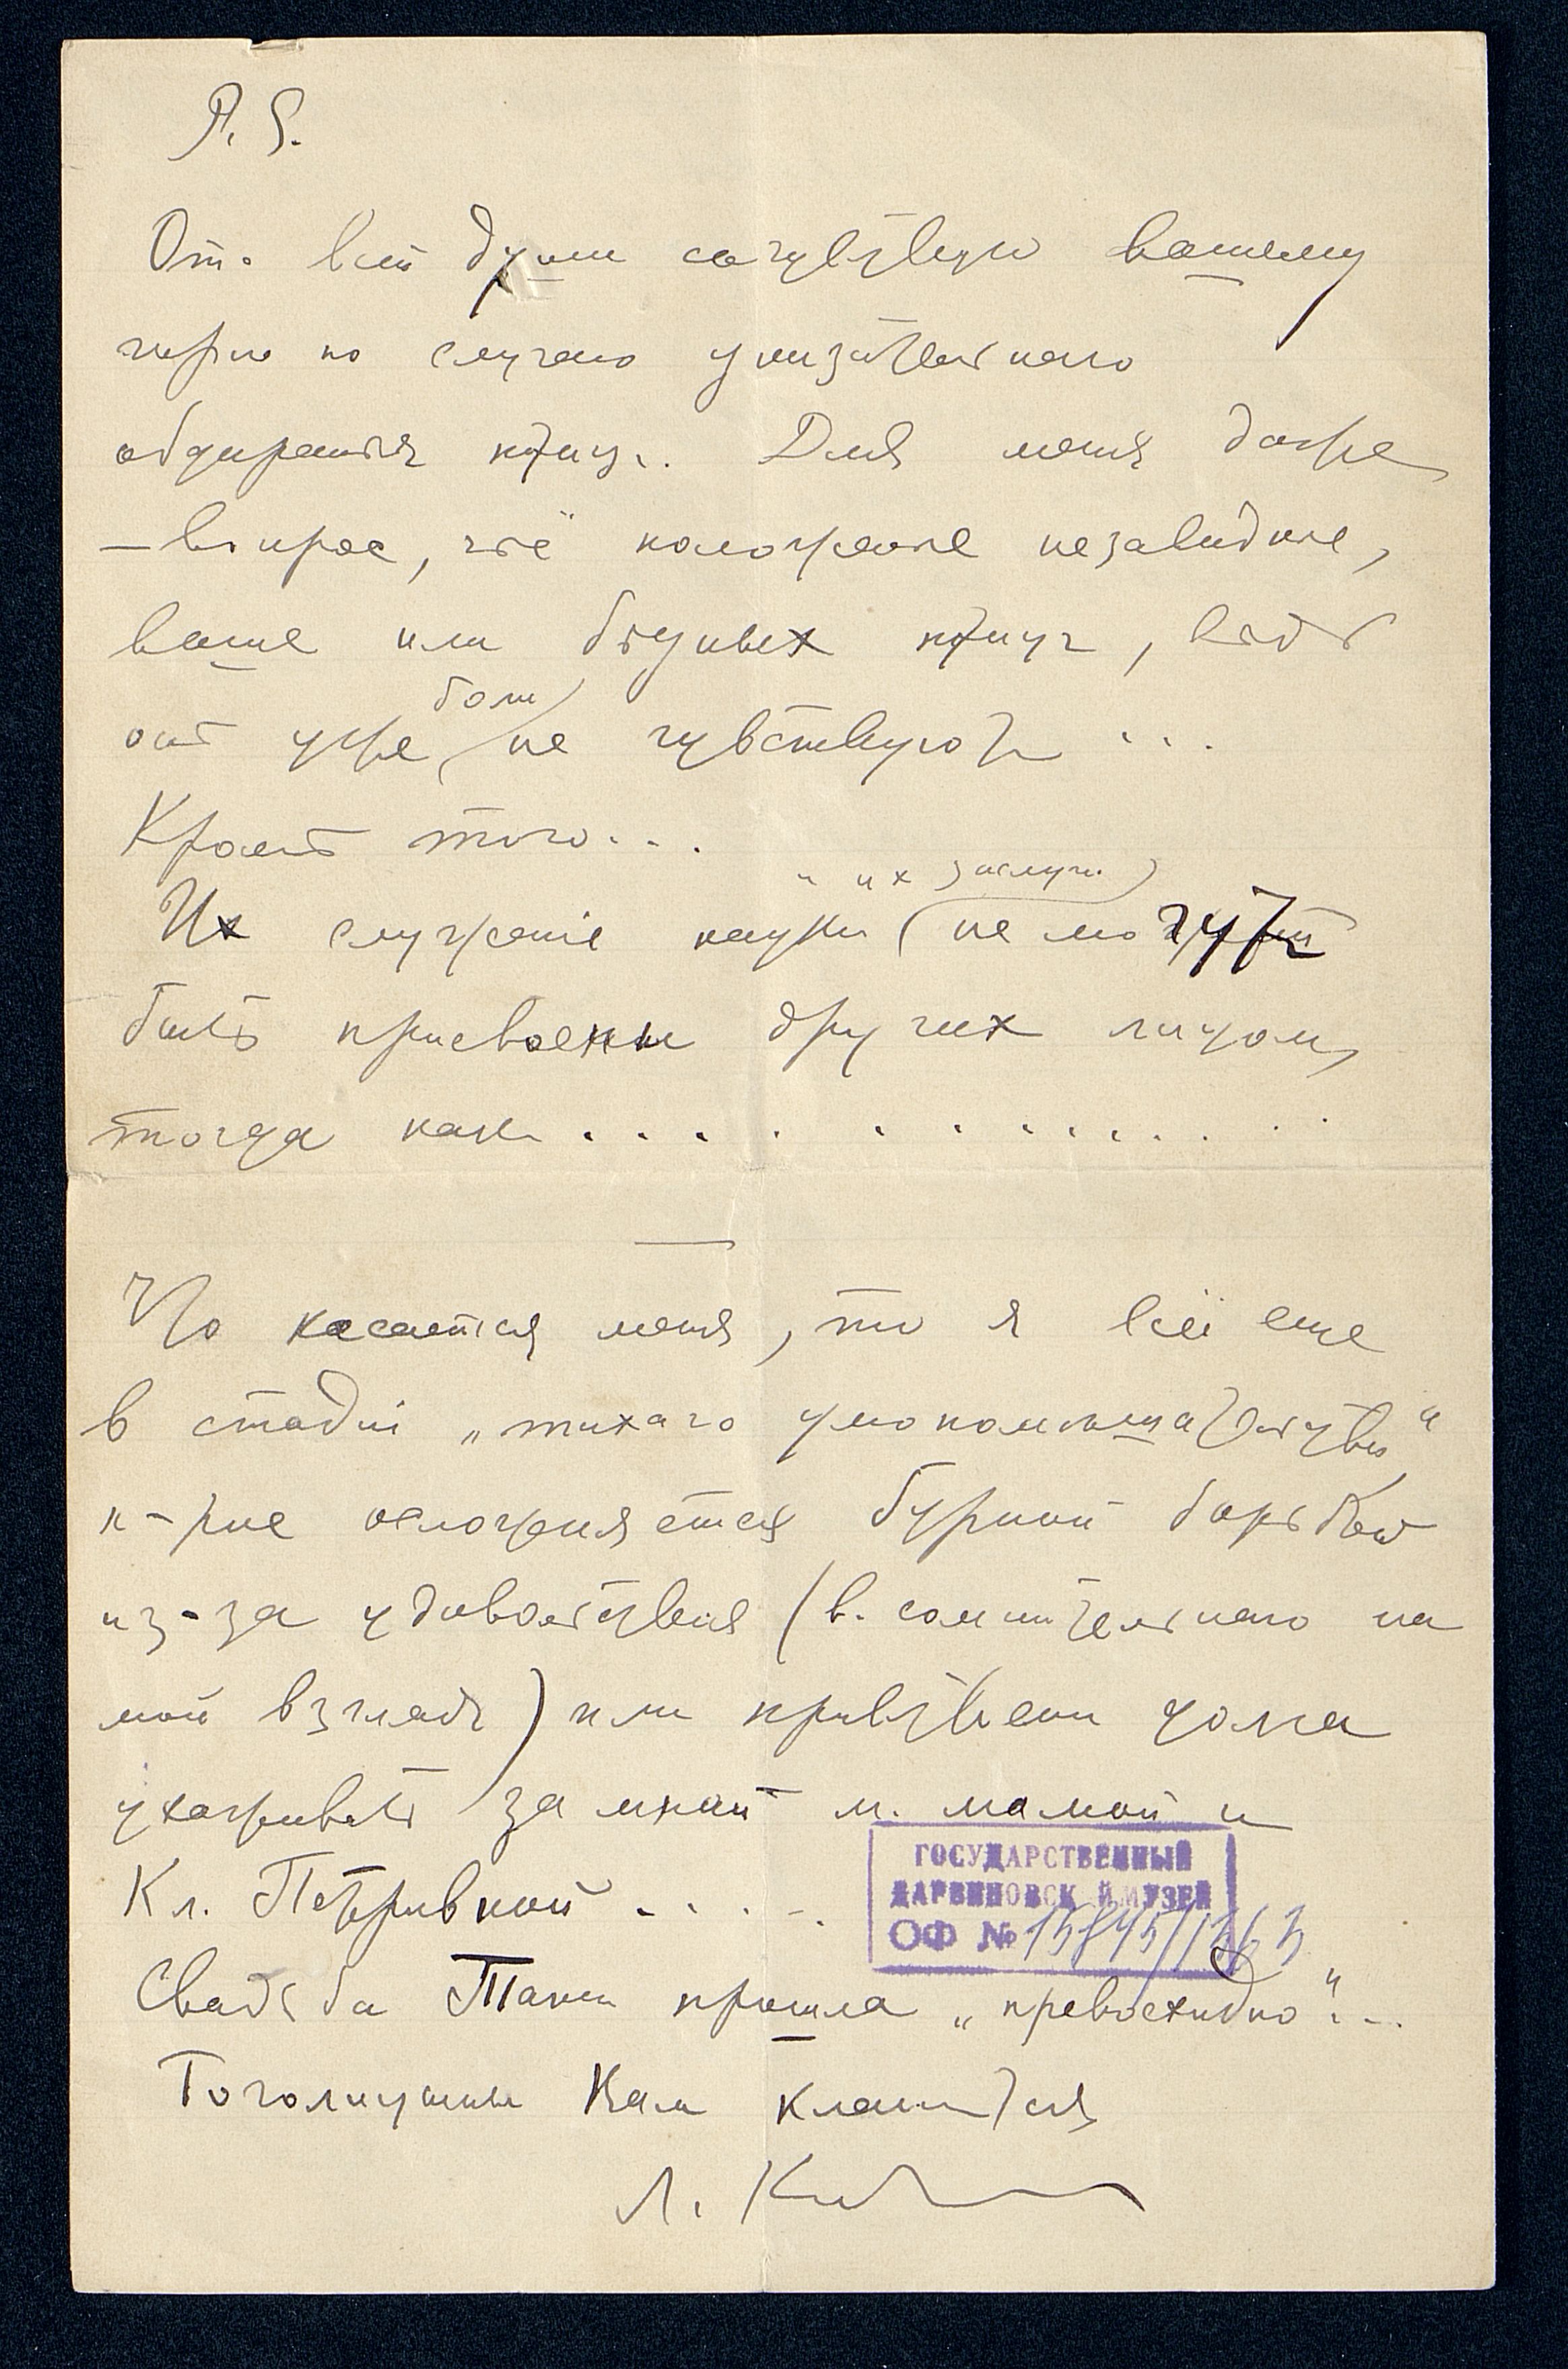 P. S.
От всей души сочувствую вашему
горю по случаю унизительнаго
обдирания птиц. Для меня даже
– вопрос, чьё положенье незавиднее,
ваше или бедных птицъ, ведь
они уже боли не чувствуют ...
Кроме того...
Их служение науке и их заслуги не могут
быть присвоены других лицом,
тогда как . . . . . . . . . . . . . .
Что касается меня, то я всё еще
в стадии „тихаго умопомешательства“
к-рое осложняется бурной борьбой
из-за удовольствия (в. сомнительнаго на
мой взгляд) или привилегии дома
ухаживать за мной м. мамой и
Кл. Петровной . . . . .
Свадьба Тани прошла „превосходно“...
Вам кланяются
Л.
ГОСУДАРСТВЕННЫЙ
ДАРВИНОВСК Й МУЗЕЙ
ОФ № 15845/1363